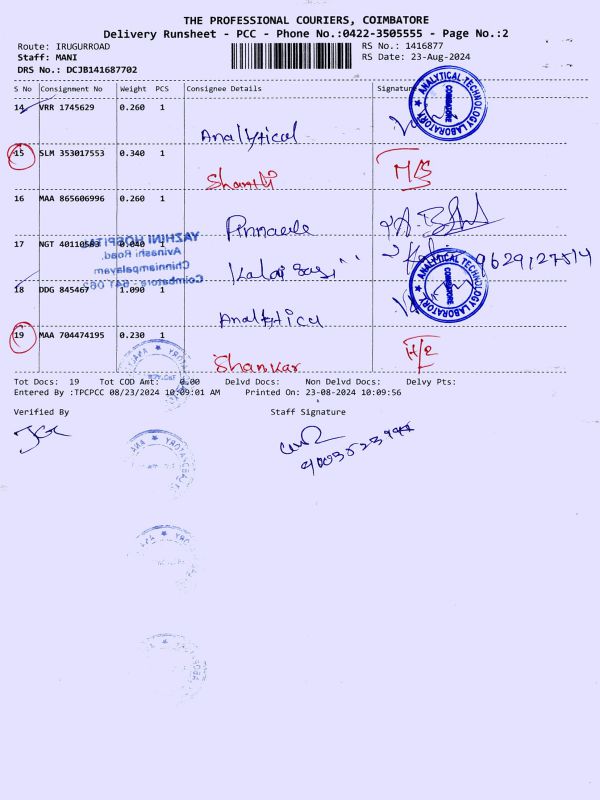 THE PROFESSIONAL COURIERS, COIMBATORE
Delivery Runsheet - PCC - Phone No.:0422-3505555 - Page No.:2
Route: IRUGURROAD
RS No.: 1416877
Staff: MANI
RS Date: 23-Aug-2024
DRS No.: DCJB141687702
S No Consignment No Weight PCS Consignee Details Signature
14 VRR 1745629 0.260 1
Analytical
ANALYTICAL TECHNOLOGY LABORATORY COIMBATORE
15 SLM 353017553 0.340 1
Shanthi
16 MAA 865606996 0.260 1
Pinnacle
17 NGT 40110583 0.040 1
YAZHINI HOSPITAL
Avinashi Road,
Chinniampalayam
Coimbatore - 641 062
9629127514
18 DDG 845467 1.090 1
Analytical
ANALYTICAL TECHNOLOGY LABORATORY COIMBATORE
19 MAA 704474195 0.230 1
Shankar
Tot Docs: 19 Tot COD Amt: 0.00 Delvd Docs: Non Delvd Docs: Delvy Pts:
Entered By :TPCPCC 08/23/2024 10:09:01 AM Printed On: 23-08-2024 10:09:56
Verified By Staff Signature